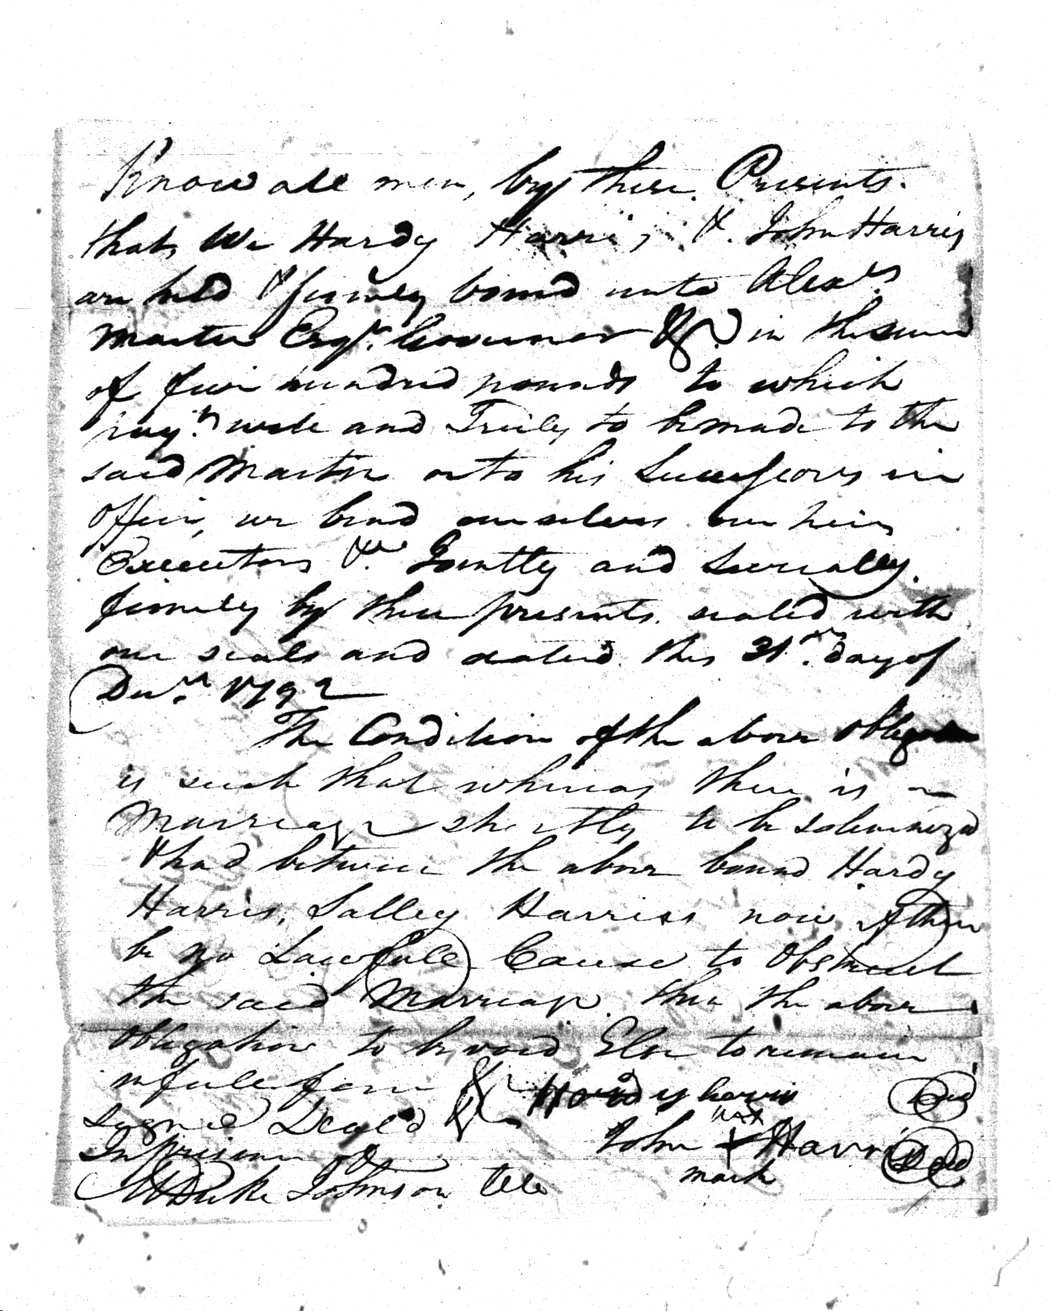 Know all men, by these Presents.
that We Hardy Harris, & John Harris
are held & firmly bound unto Alexr.
Martin Esqr. Governor &c in the sum
of five hundred pounds to which
paymt. well and Truly to be made to the
said Martin or to his Successors in
office, we bind ourselves our heirs
Executors &c. Jointly and Severally.
firmly by these presents. sealed with
our seals and dated this 31st. day of
Decr. 1792
The Condition of the above Obligation
is such that whereas there is a
Marriage shortly to be solemnized
& had between the above bound Hardy
Harris, Salley Harriss now if there
be no Lawfull Cause to Obstruct
the said Marriage. then the above
Obligation to be void Else to remain
in full force &c Hardy harris Seal
Signed Seal'd & John + Harris Seal
In Presence of mark
M Duke Johnson